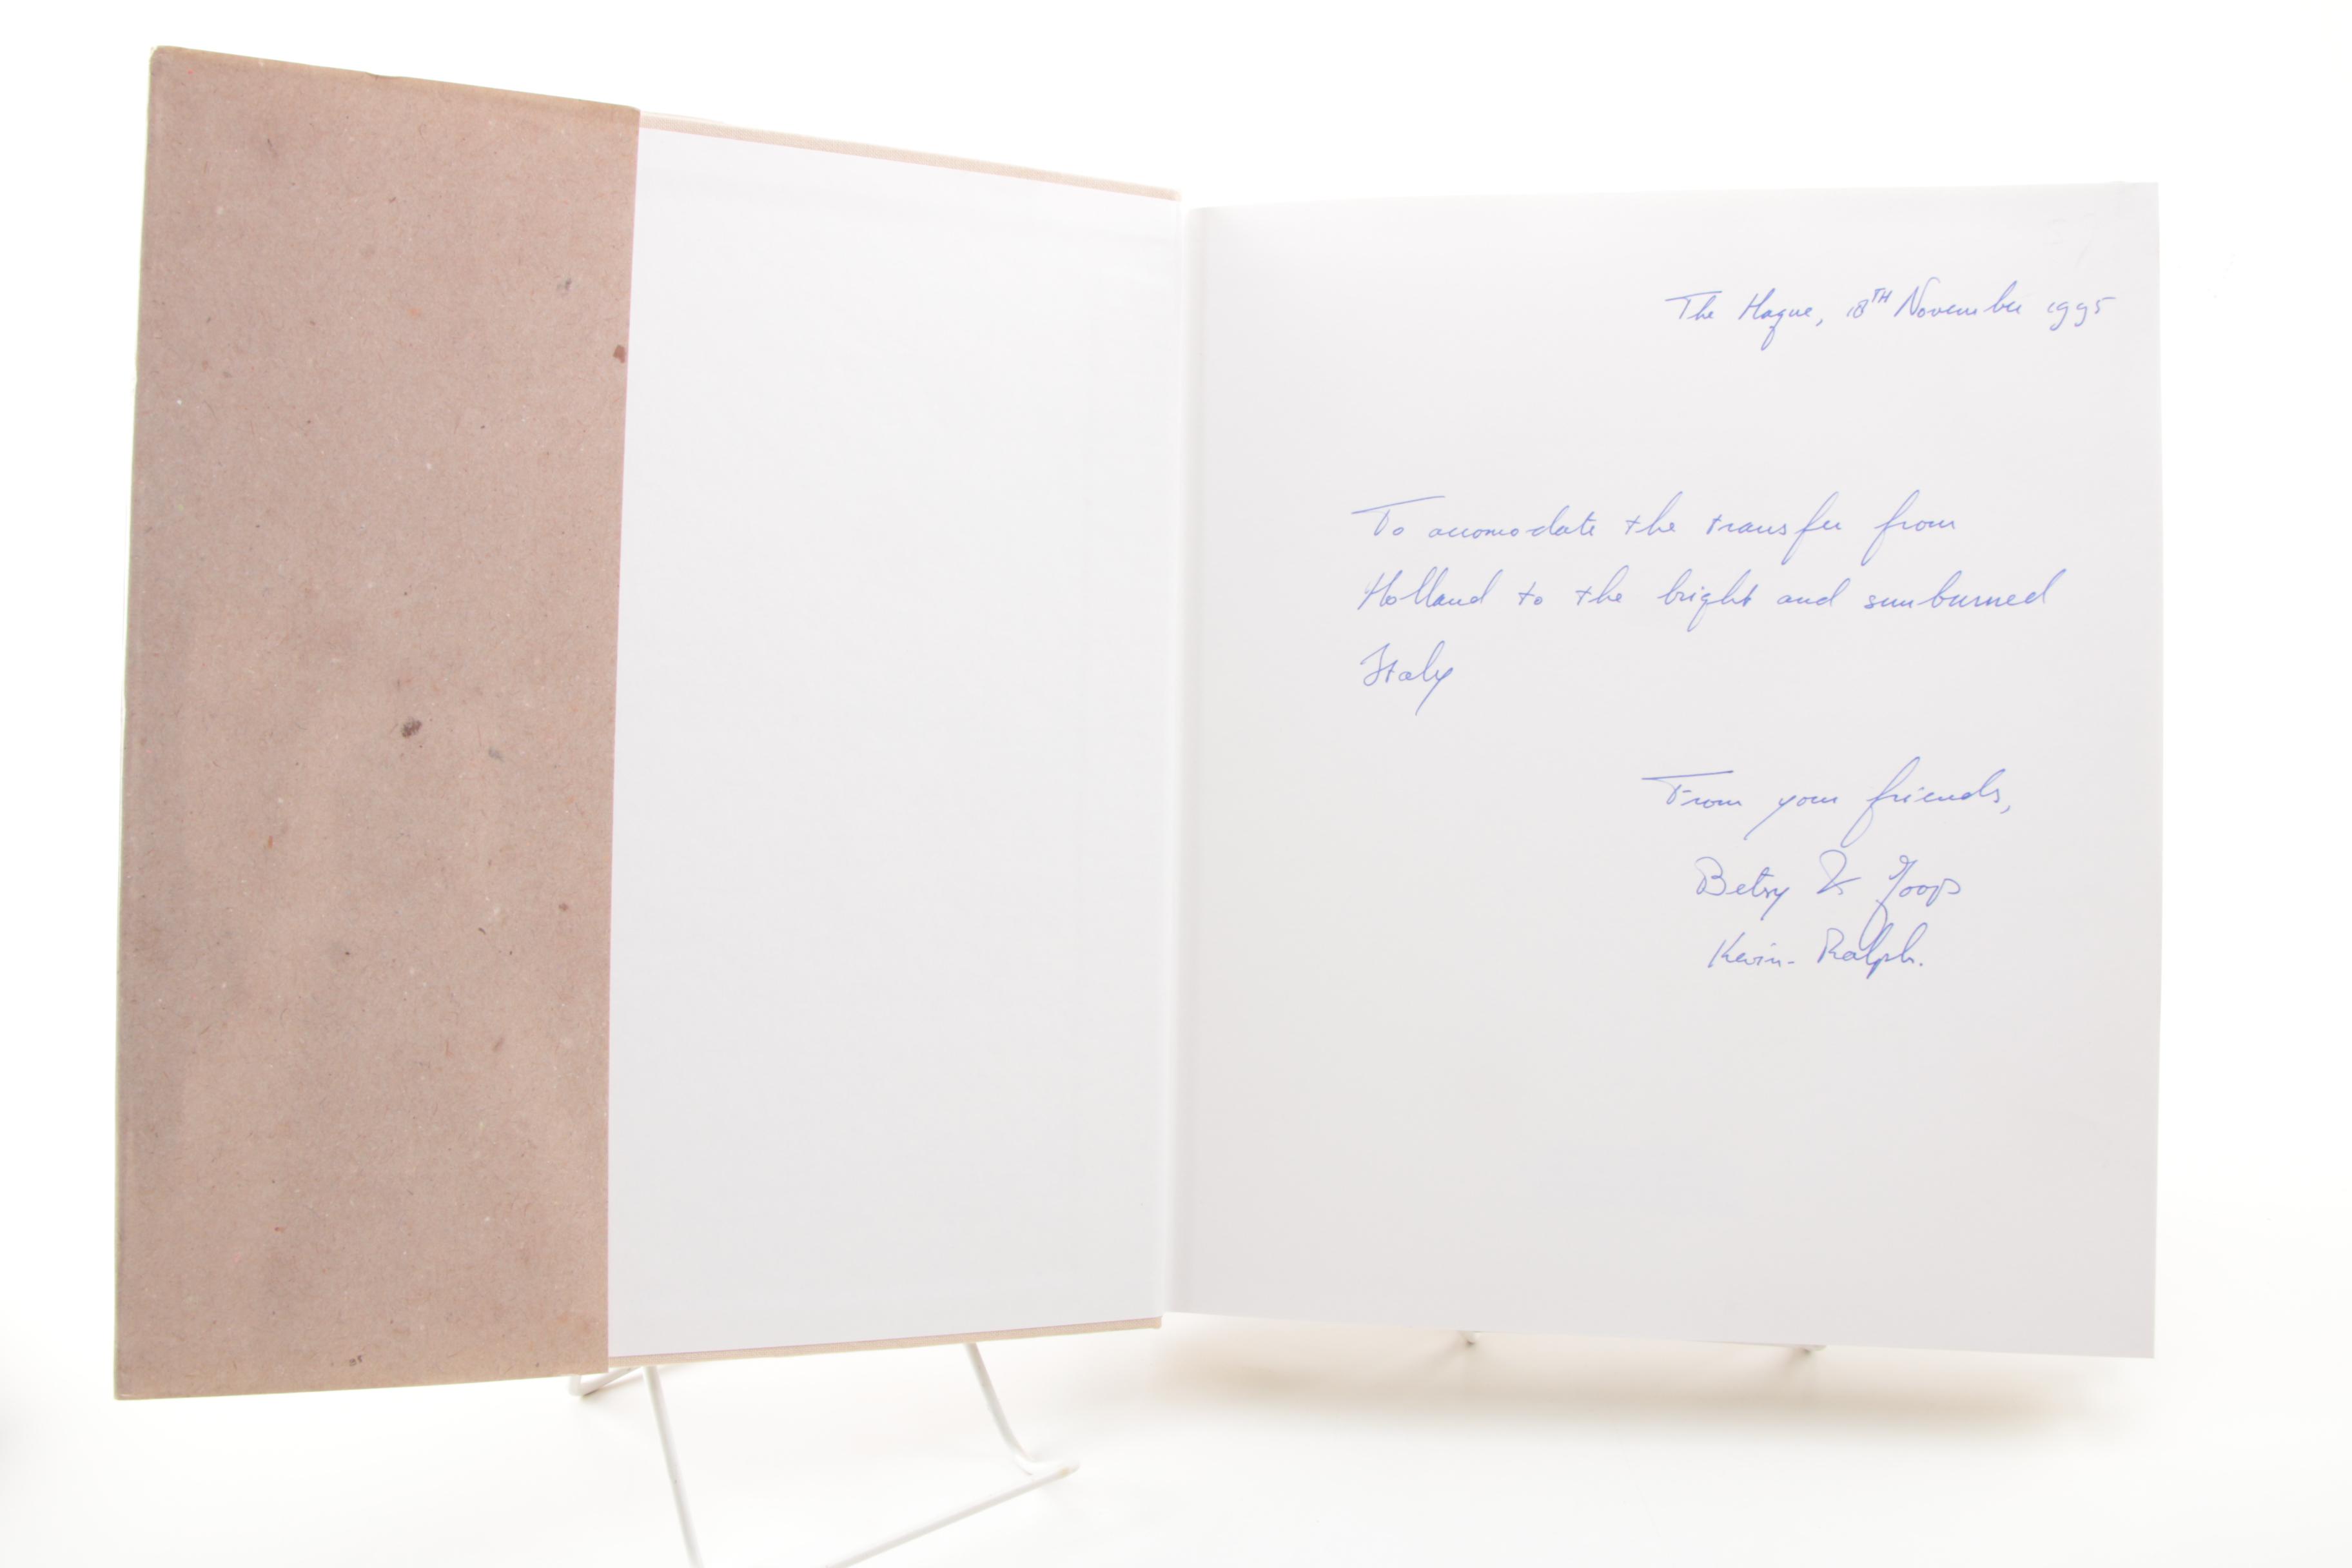 The Hague, 18TH November 1995
To accomodate the transfer from
Holland to the bright and sunburned
Italy
From your friends,
Betsy & Joop
Kevin - Ralph.